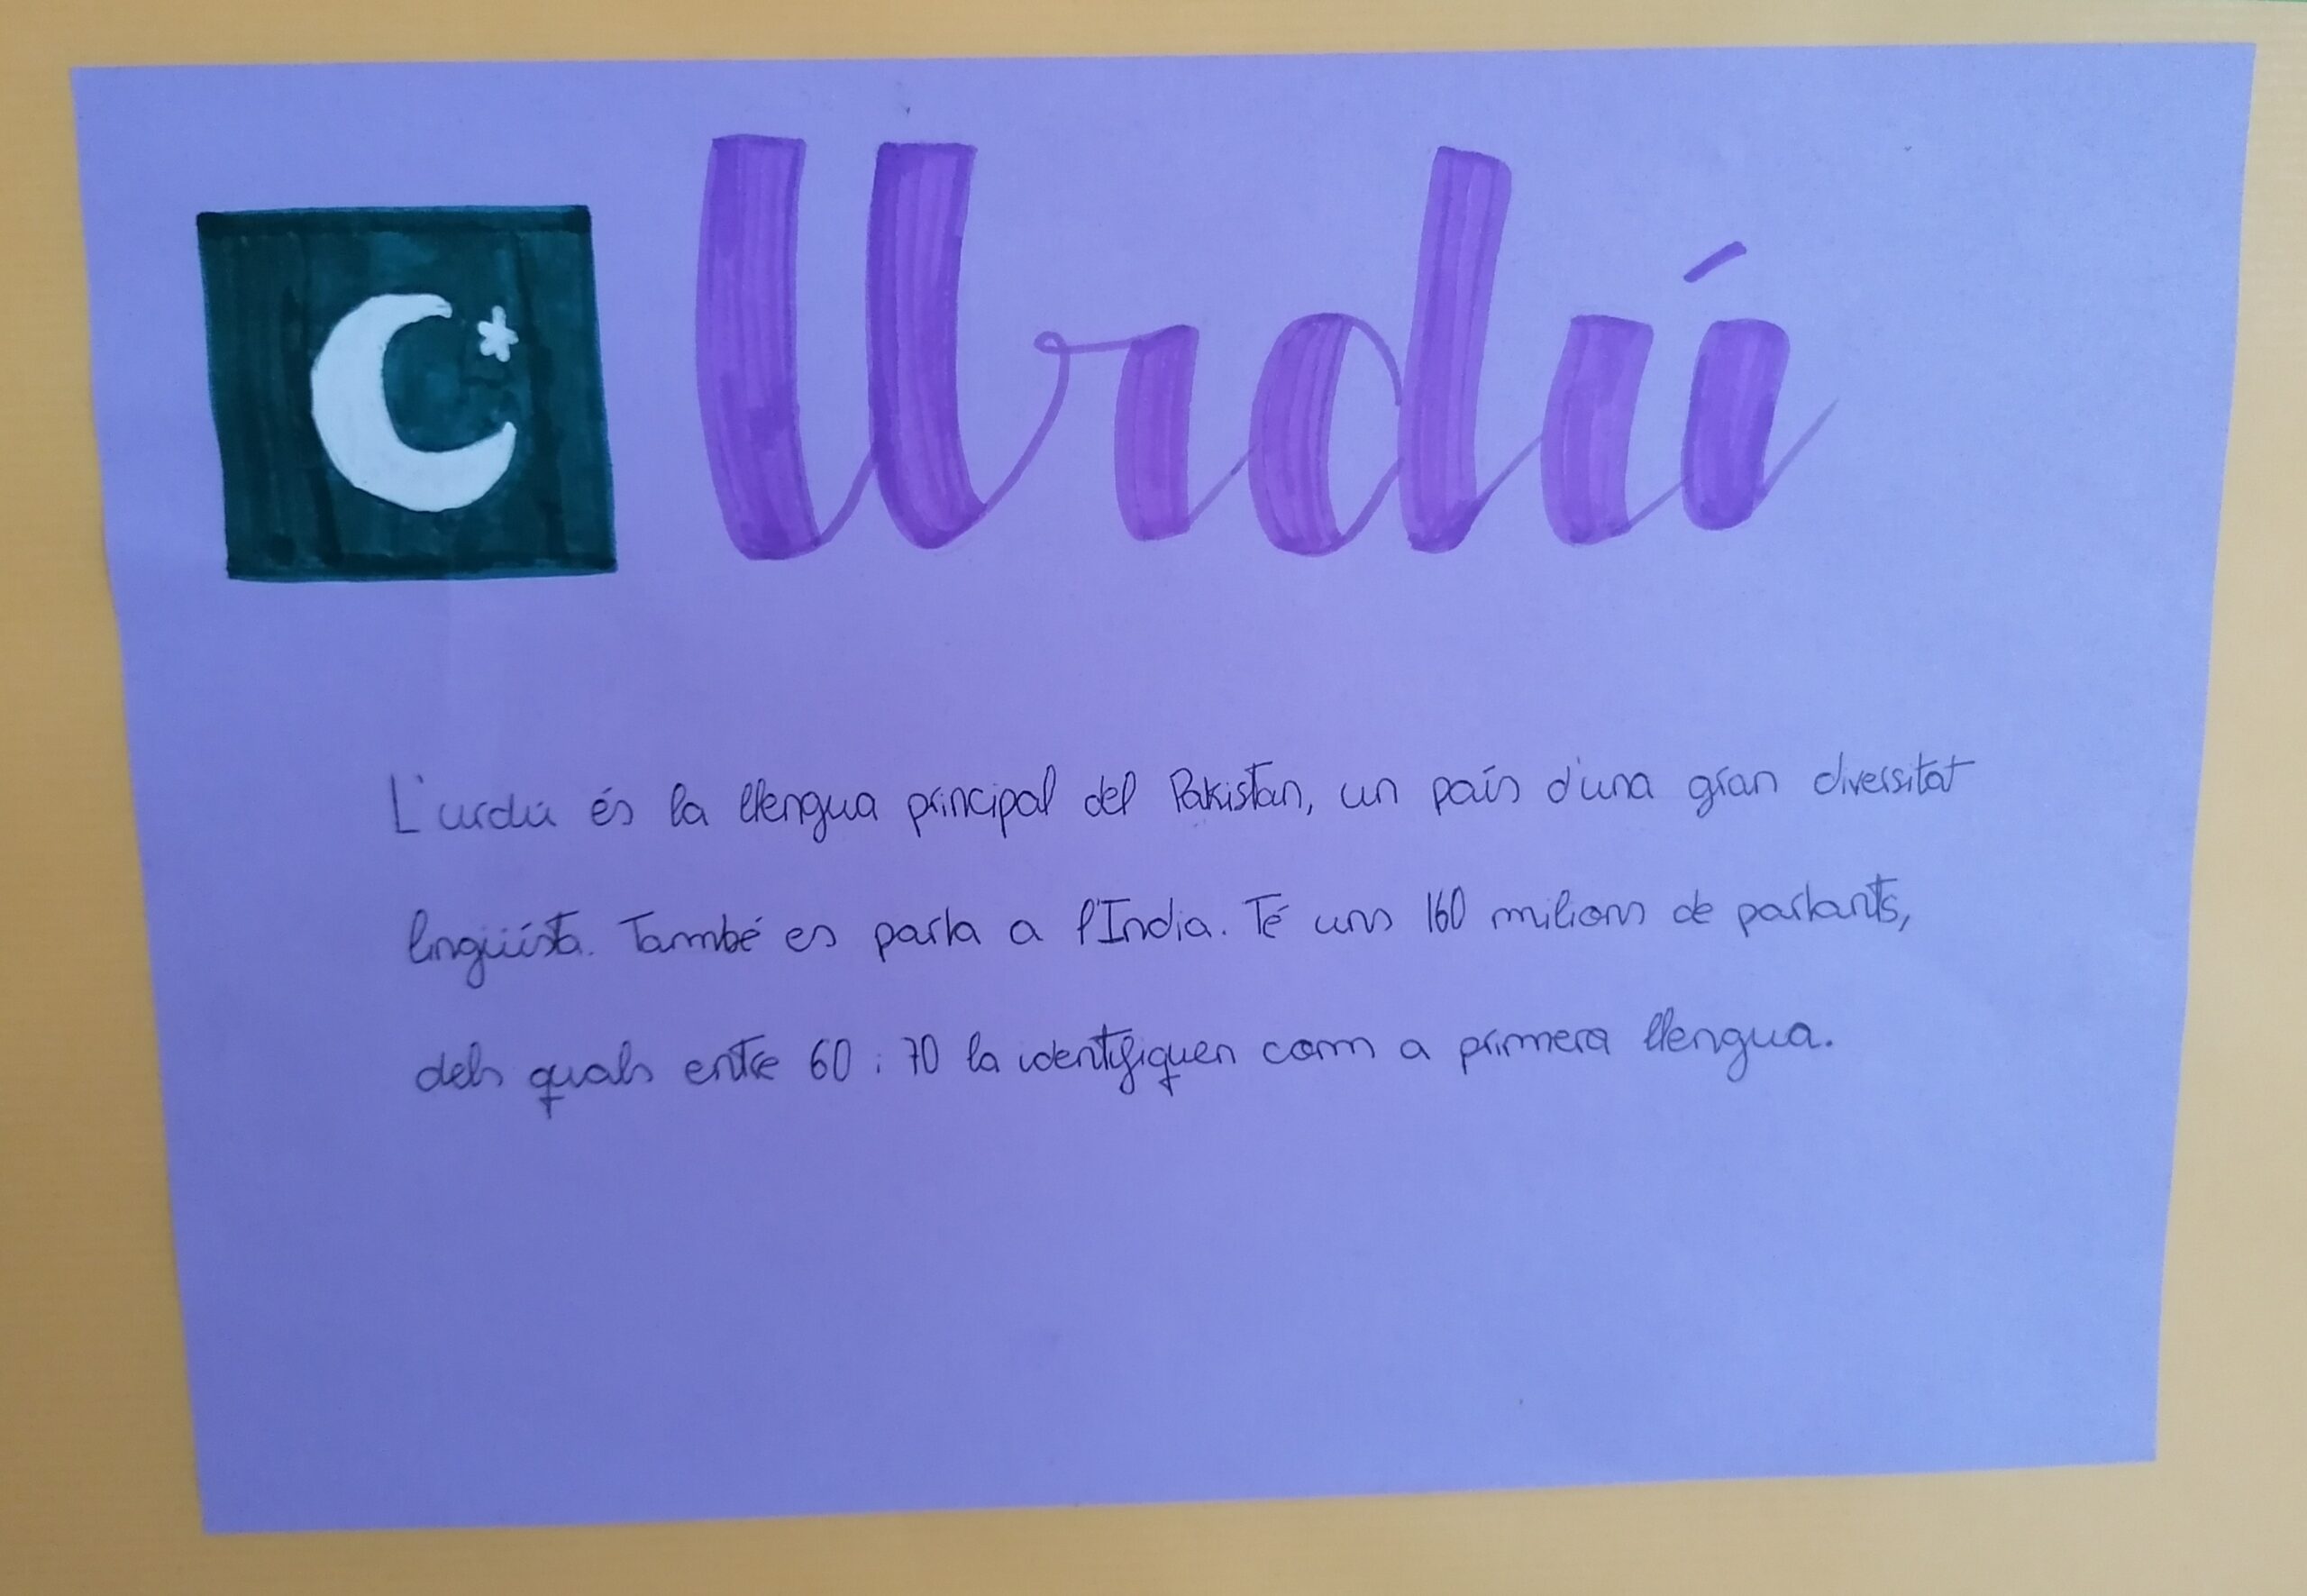 Urdú
L'urdú és la llengua principal del Pakistan, un país d'una gran diversitat
lingüísta. També es parla a l'Índia. Té uns 160 milions de parlants,
dels quals entre 60 i 70 la identifiquen com a primera llengua.